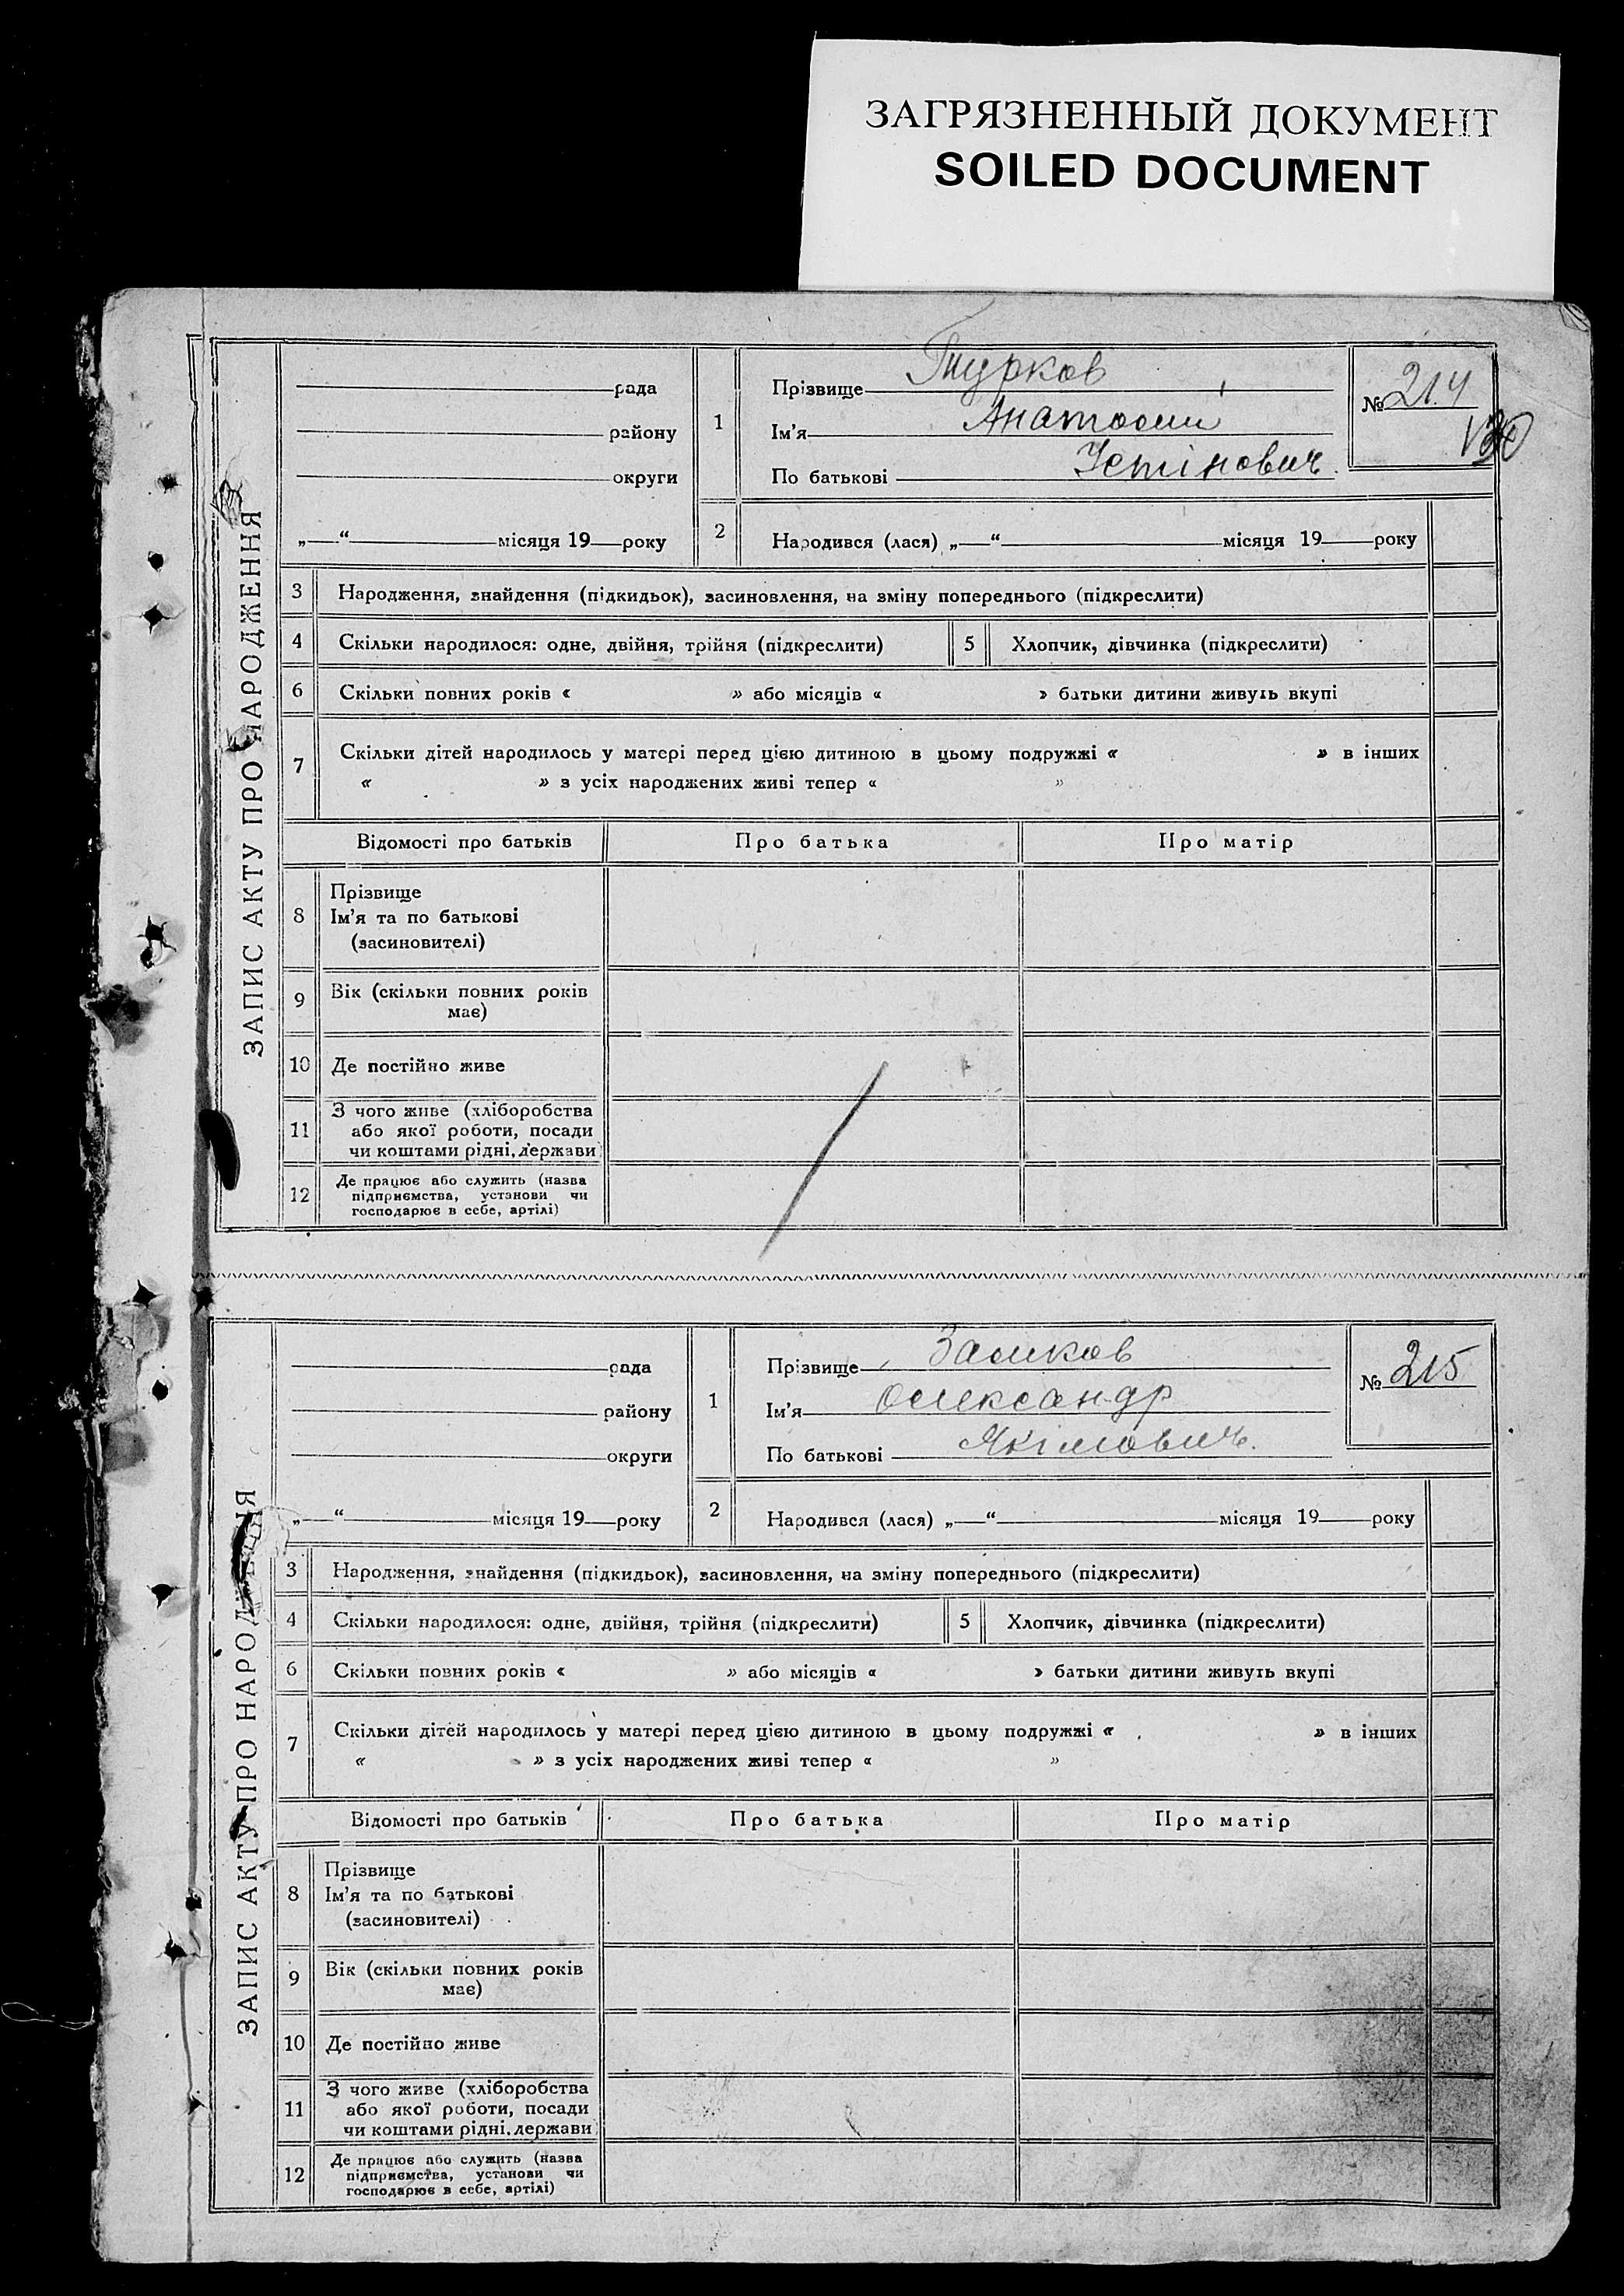 ЗАГРЯЗНЕННЫЙ ДОКУМЕНТ
SOILED DOCUMENT
ЗАПИС АКТУ ПРО НАРОДЖЕННЯ
рада
району
округи
„ “ місяця 19 року
1 Прізвище Турков
Ім'я Анатолий
По батькові Устінович
№ 214
2 Народився (лася) „ “ місяця 19 року
3 Народження, знайдення (підкидьок), засиновлення, на зміну попереднього (підкреслити)
4 Скільки народилося: одне, двійня, трійня (підкреслити) 5 Хлопчик, дівчинка (підкреслити)
6 Скільки повних років « » або місяців « » батьки дитини живуть вкупі
7 Скільки дітей народилось у матері перед цією дитиною в цьому подружжі « » в інших
« » з усіх народжених живі тепер « »
Відомості про батьків Про батька Про матір
8 Прізвище
Ім'я та по батькові
(засиновителі)
9 Вік (скільки повних років
має)
10 Де постійно живе
11 З чого живе (хліборобства
або якої роботи, посади
чи коштами рідні, держави
12 Де працює або служить (назва
підприємства, установи чи
господарює в себе, артілі)
ЗАПИС АКТУ ПРО НАРОДЖЕННЯ
рада
району
округи
„ “ місяця 19 року
1 Прізвище Заиков
Ім'я Олександр
По батькові Якімович.
№ 215
2 Народився (лася) „ “ місяця 19 року
3 Народження, знайдення (підкидьок), засиновлення, на зміну попереднього (підкреслити)
4 Скільки народилося: одне, двійня, трійня (підкреслити) 5 Хлопчик, дівчинка (підкреслити)
6 Скільки повних років « » або місяців « » батьки дитини живуть вкупі
7 Скільки дітей народилось у матері перед цією дитиною в цьому подружжі « » в інших
« » з усіх народжених живі тепер « »
Відомості про батьків Про батька Про матір
8 Прізвище
Ім'я та по батькові
(засиновителі)
9 Вік (скільки повних років
має)
10 Де постійно живе
11 З чого живе (хліборобства
або якої роботи, посади
чи коштами рідні, держави
12 Де працює або служить (назва
підприємства, установи чи
господарює в себе, артілі)